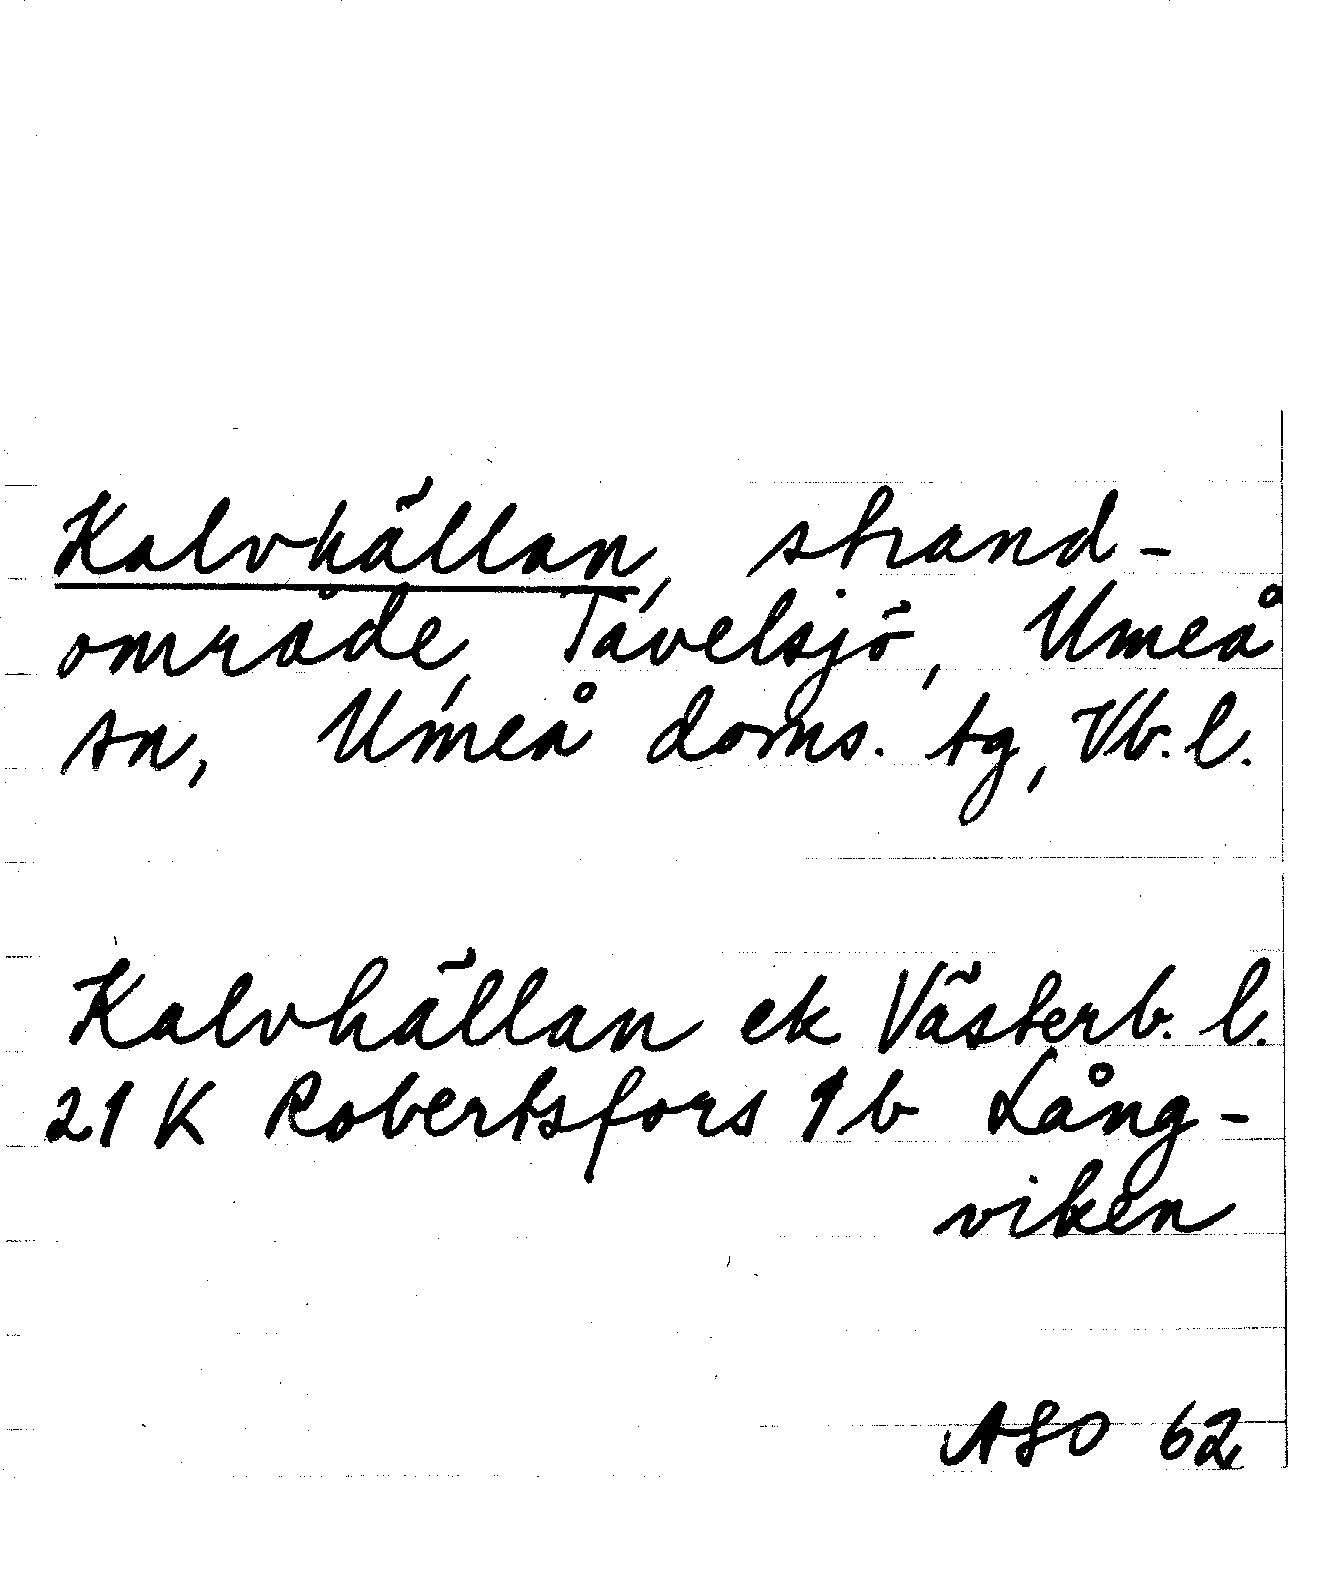 Kalvhällan, strand-
område, Tavelsjö, Umeå
sn, Umeå doms. tg, Vb. l.
Kalvhällan ek Västerb. l.
21 K Robertsfors 1b Lång-
viken
ASO 62